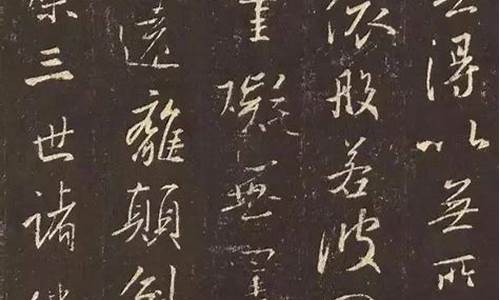 無得以無所
依般若波
罣礙無罣
遠離顛倒
槃三世諸